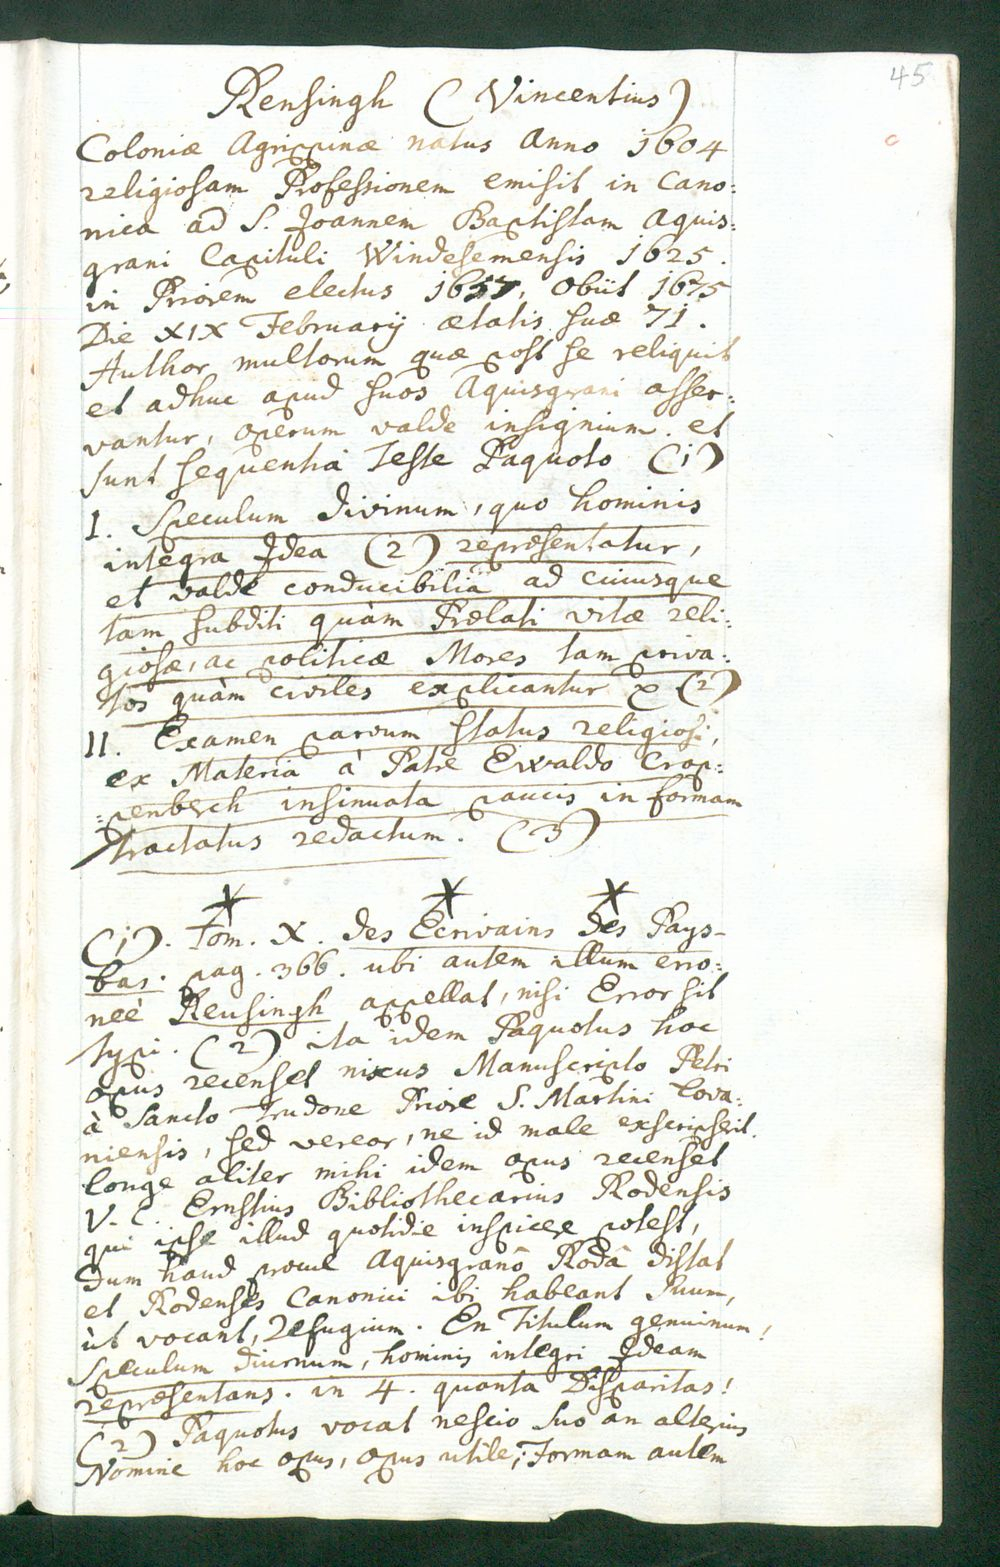 45
Rensingh (Vincentius)
Coloniæ Agrippinæ natus Anno 1604
religiosam Professionem emisit in Cano:
nica ad S. Joannem Baptistam Aquis:
grani Capituli Windesemensis 1625.
in Priorem electus 1657, obiit 1675
Die XIX Februarij ætatis suæ 71.
Author multorum quæ post se reliquit
et adhuc apud suos Aquisgrani asser:
vantur, operum valde insignium. et
sunt sequentia Teste Paquoto (1)
I. Speculum divinum, quo hominis
integra Idea (2) repræsentatur,
et valde conducibilia ad cuiusque
tam subditi quàm Prælati vitæ reli:
giosæ, ac politicæ Mores tam priva:
tos quàm civiles explicantur (2)
II. Examen parvum status religiosi,
ex Materia à Patre Ewaldo Crop:
:penberch insinuata paucis in formam
tractatus redactum. (3)
(1). Tom. X. des Ecrivains des Pays-
bas. pag. 366. ubi autem illum erro:
neè Reusingh appellat, nisi Error sit
typi. (2) ita idem Paquotus hoc
opus recenset nixus Manuscripto Petri
à Sancto Trudone Priore S. Martini Lova:
niensis, sed vereor, ne id male exscripserit.
longe aliter mihi idem opus recenset
V. C. Ernstius Bibliothecarius Rodensis
qui ipse illud quotidie inspicere potest,
dum haud procul Aquisgranô Rodâ distat
et Rodenses Canonici ibi habeant suum,
ùt vocant, Refugium. En Titulum genuinum!
Speculum diurnum, hominis integri Ideam
repræsentans. in 4. quanta Disparitas!
(2) Paquotus vocat nescio suo an alterius
Nomine hoc opus, opus utile; Formam autem